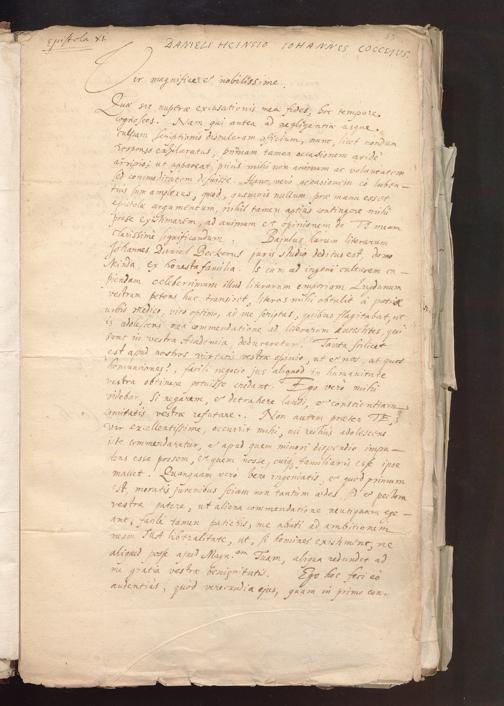 Epistola XI.
DANIELI HEINSIO IOHANNES COCCEIUS.
Vir magnifice et nobilissime.
Quae sit nuperae excusationis meae fides, hoc tempore
cognosces. Nam qui antea ad negligentiae usque
culpam scriptionis distuleram officium, nunc, licet nondum
responso exhilaratus, primam tamen occasionem avide
arripio; ut appareat, prius mihi non animum ac voluntatem
sed commoditatem defuisse. Hanc vero occasionem eo luben-
tius sum amplexus, quod, quamvis nullum prae manu esset
epistolae argumentum, nihil tamen aptius contingere mihi
posse existimarem, ad animum et opinionem de Te meam
clarissime significandum. Bajulus harum literarum
Johannes Daniel Beckerus juris studio deditus est, domo
Minda, ex honesta familia. Is cum ad ingenii culturam
celeberrimum illud literarum emporium Lugdunum
vestram petens huc transiret, literas mihi obtulit a patriae
urbis medico, viro optimo, ad me scriptas, quibus flagitabat, ut
is adolescens mea commendatione ad literarum Antistites, qui
sunt in vestra Academia, deduceretur. Tanta scilicet
est apud nostros virtutis vestrae opinio, ut et nos, ut quos
homunciones, facili negocio jus aliquod in humanitate
vestra obtinere potuisse credant. Ego vero mihi
viderer, si negarem, et detrahere laudi, et conscientiam
comitatis vestrae refutare. Non autem praeter Te,
vir excellentissime, occurrit mihi, cui rectius adolescens
iste commendaretur, et apud quem minori dispendio impu-
dens esse possem, et quem nosse, cuique familiaris esse ipse
mallet. Quanquam vero bene ingeniatis, et quod primum
est, moratis juvenibus sciam non tantum aedes, sed et pectora
vestra patere, ut aliena commendatione neutiquam ege-
ant, facile tamen patieris, me abuti ad ambitionem
meam tua libertalitate, ut, si homines existiment, me
aliquid posse apud Magn.em Tuam, aliqua redundet ad
me gratia vestrae benignitatis. Ego hoc feci eo
audentius, quod verecundia ejus, quam in primo con-